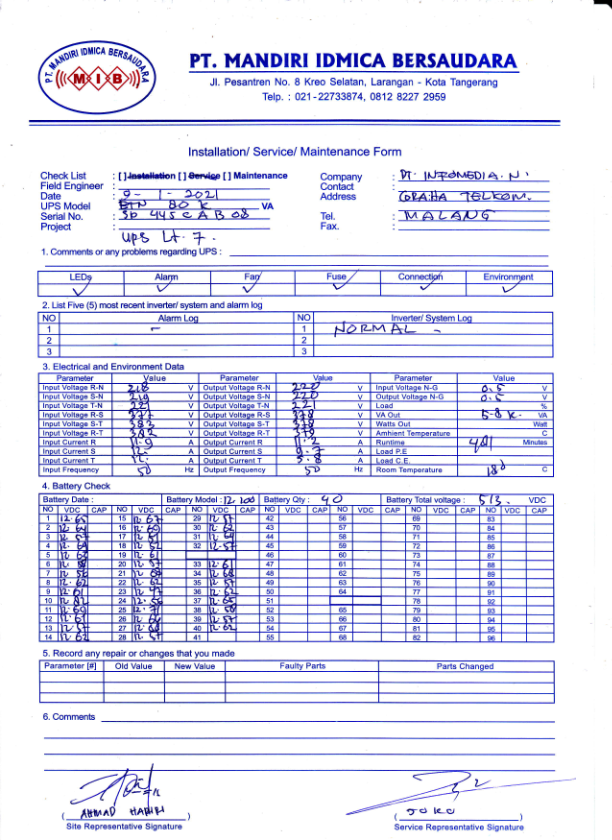 PT. MANDIRI IDMICA BERSAUDARA
MIB
PT. MANDIRI IDMICA BERSAUDARA
Jl. Pesantren No. 8 Kreo Selatan, Larangan - Kota Tangerang
Telp. : 021-22733874, 0812 8227 2959
Installation/ Service/ Maintenance Form
Check List : [ ] Installation [ ] Service [ ] Maintenance
Company : PT. INFOMEDIA. N.
Field Engineer :
Contact :
Date : 9 - 1 - 2021
Address : GRAHA TELKOM.
UPS Model : ETN 80 K VA
Serial No. : 3P 445 C A B 08
Tel. : MALANG
Project : UPS Lt. 7.
Fax. :
1. Comments or any problems regarding UPS :
LEDs Alarm Fan Fuse Connection Environment
2. List Five (5) most recent inverter/ system and alarm log
NO Alarm Log NO Inverter/ System Log
1 - 1 NORMAL -
2 2
3 3
3. Electrical and Environment Data
Parameter Value Parameter Value Parameter Value
Input Voltage R-N 218 V Output Voltage R-N 220 V Input Voltage N-G 0.5 V
Input Voltage S-N 219 V Output Voltage S-N 220 V Output Voltage N-G 0.5 V
Input Voltage T-N 221 V Output Voltage T-N 221 V Load %
Input Voltage R-S 377 V Output Voltage R-S 378 V VA Out 5.8 K. VA
Input Voltage S-T 383 V Output Voltage S-T 378 V Watts Out Watt
Input Voltage R-T 382 V Output Voltage R-T 379 V Ambient Temperature C
Input Current R 11.9 A Output Current R 11.2 A Runtime 481 Minutes
Input Current S 12. A Output Current S 9.7 A Load P.E
Input Current T 12. A Output Current T 5.8 A Load C.E.
Input Frequency 50 Hz Output Frequency 50 Hz Room Temperature 18° C
4. Battery Check
Battery Date : Battery Model : 12. 100 Battery Qty : 40 Battery Total voltage : 513. VDC
NO VDC CAP NO VDC CAP NO VDC CAP NO VDC CAP NO VDC CAP NO VDC CAP NO VDC CAP
1 12.65 15 12.67 29 12.57 42 56 69 83
2 12.64 16 12.60 30 12.62 43 57 70 84
3 12.57 17 12.51 31 12.64 44 58 71 85
4 12.64 18 12.52 32 12.57 45 59 72 86
5 12.62 19 12.61 46 60 73 87
6 20 12.57 33 12.61 47 61 74 88
7 12.56 21 34 12.68 48 62 75 89
8 12.62 22 12.62 35 12.57 49 63 76 90
9 12.61 23 12.47 36 12.62 50 64 77 91
10 24 12.56 37 12.65 51 78 92
11 12.60 25 12.71 38 12.58 52 65 79 93
12 12.61 26 12.66 39 12.57 53 66 80 94
13 12.57 27 12.68 40 12.62 54 67 81 95
14 12.62 28 12.57 41 55 68 82 96
5. Record any repair or changes that you made
Parameter [#] Old Value New Value Faulty Parts Parts Changed
6. Comments
( AHMAD HABIBI )
Site Representative Signature
( JOKO )
Service Representative Signature